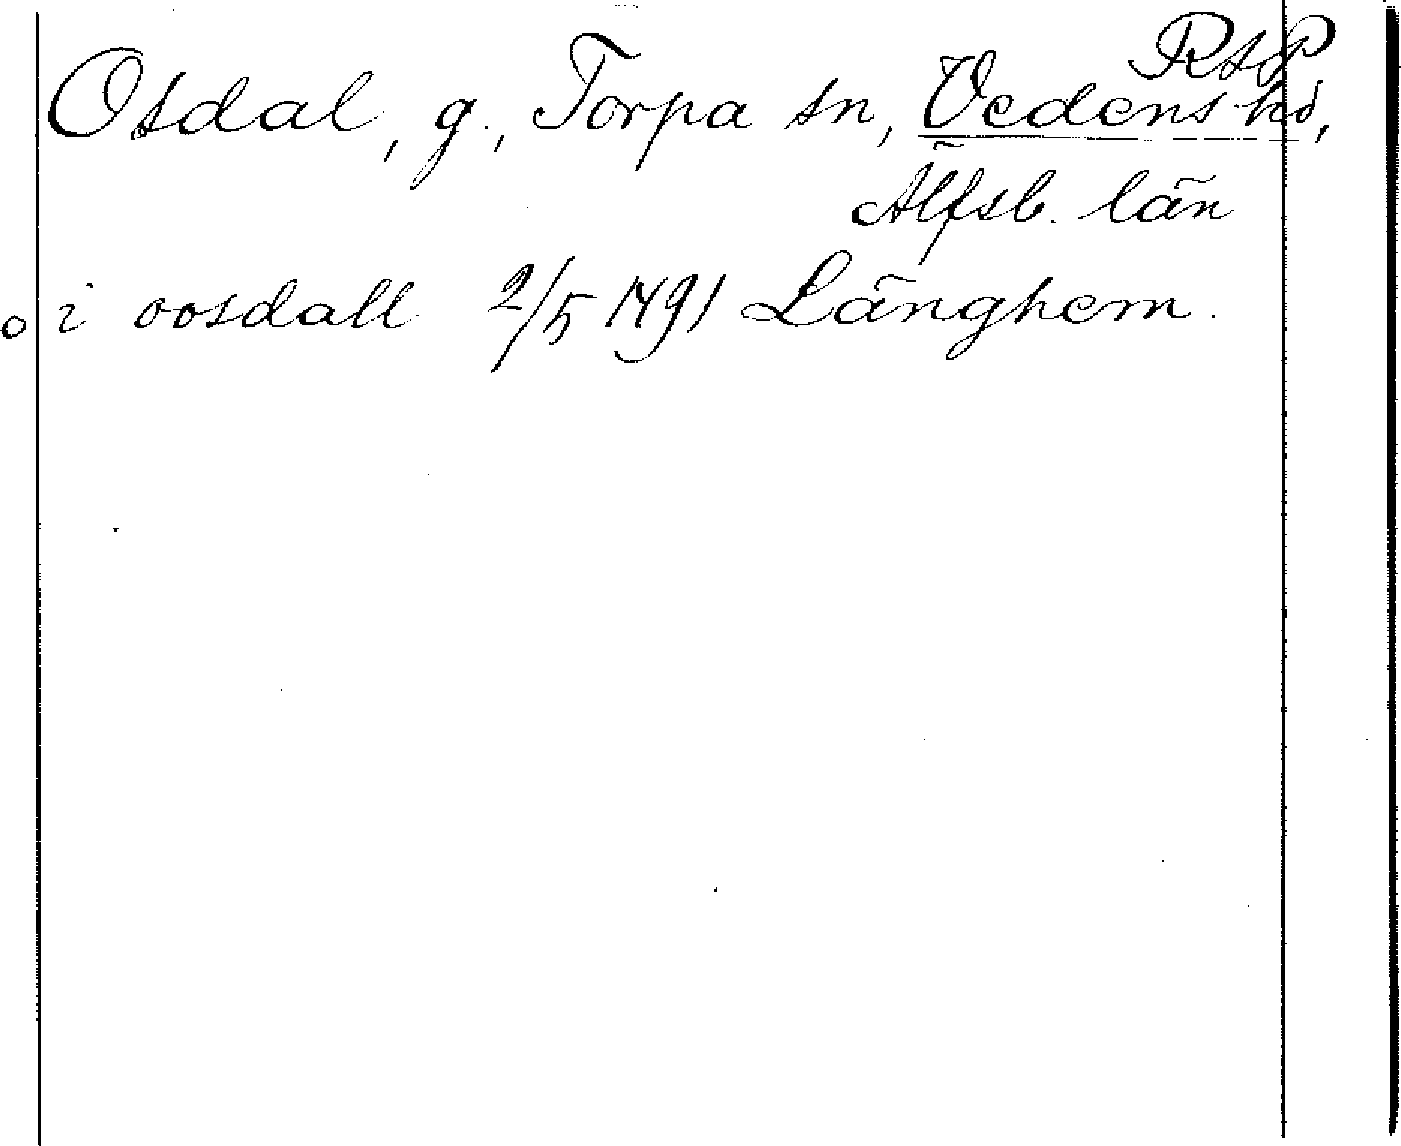 RAP
Osdal, g., Torpa sn, Vedens hd,
Älfsb. län
o i oosdall 2/5 1491 Länghem.